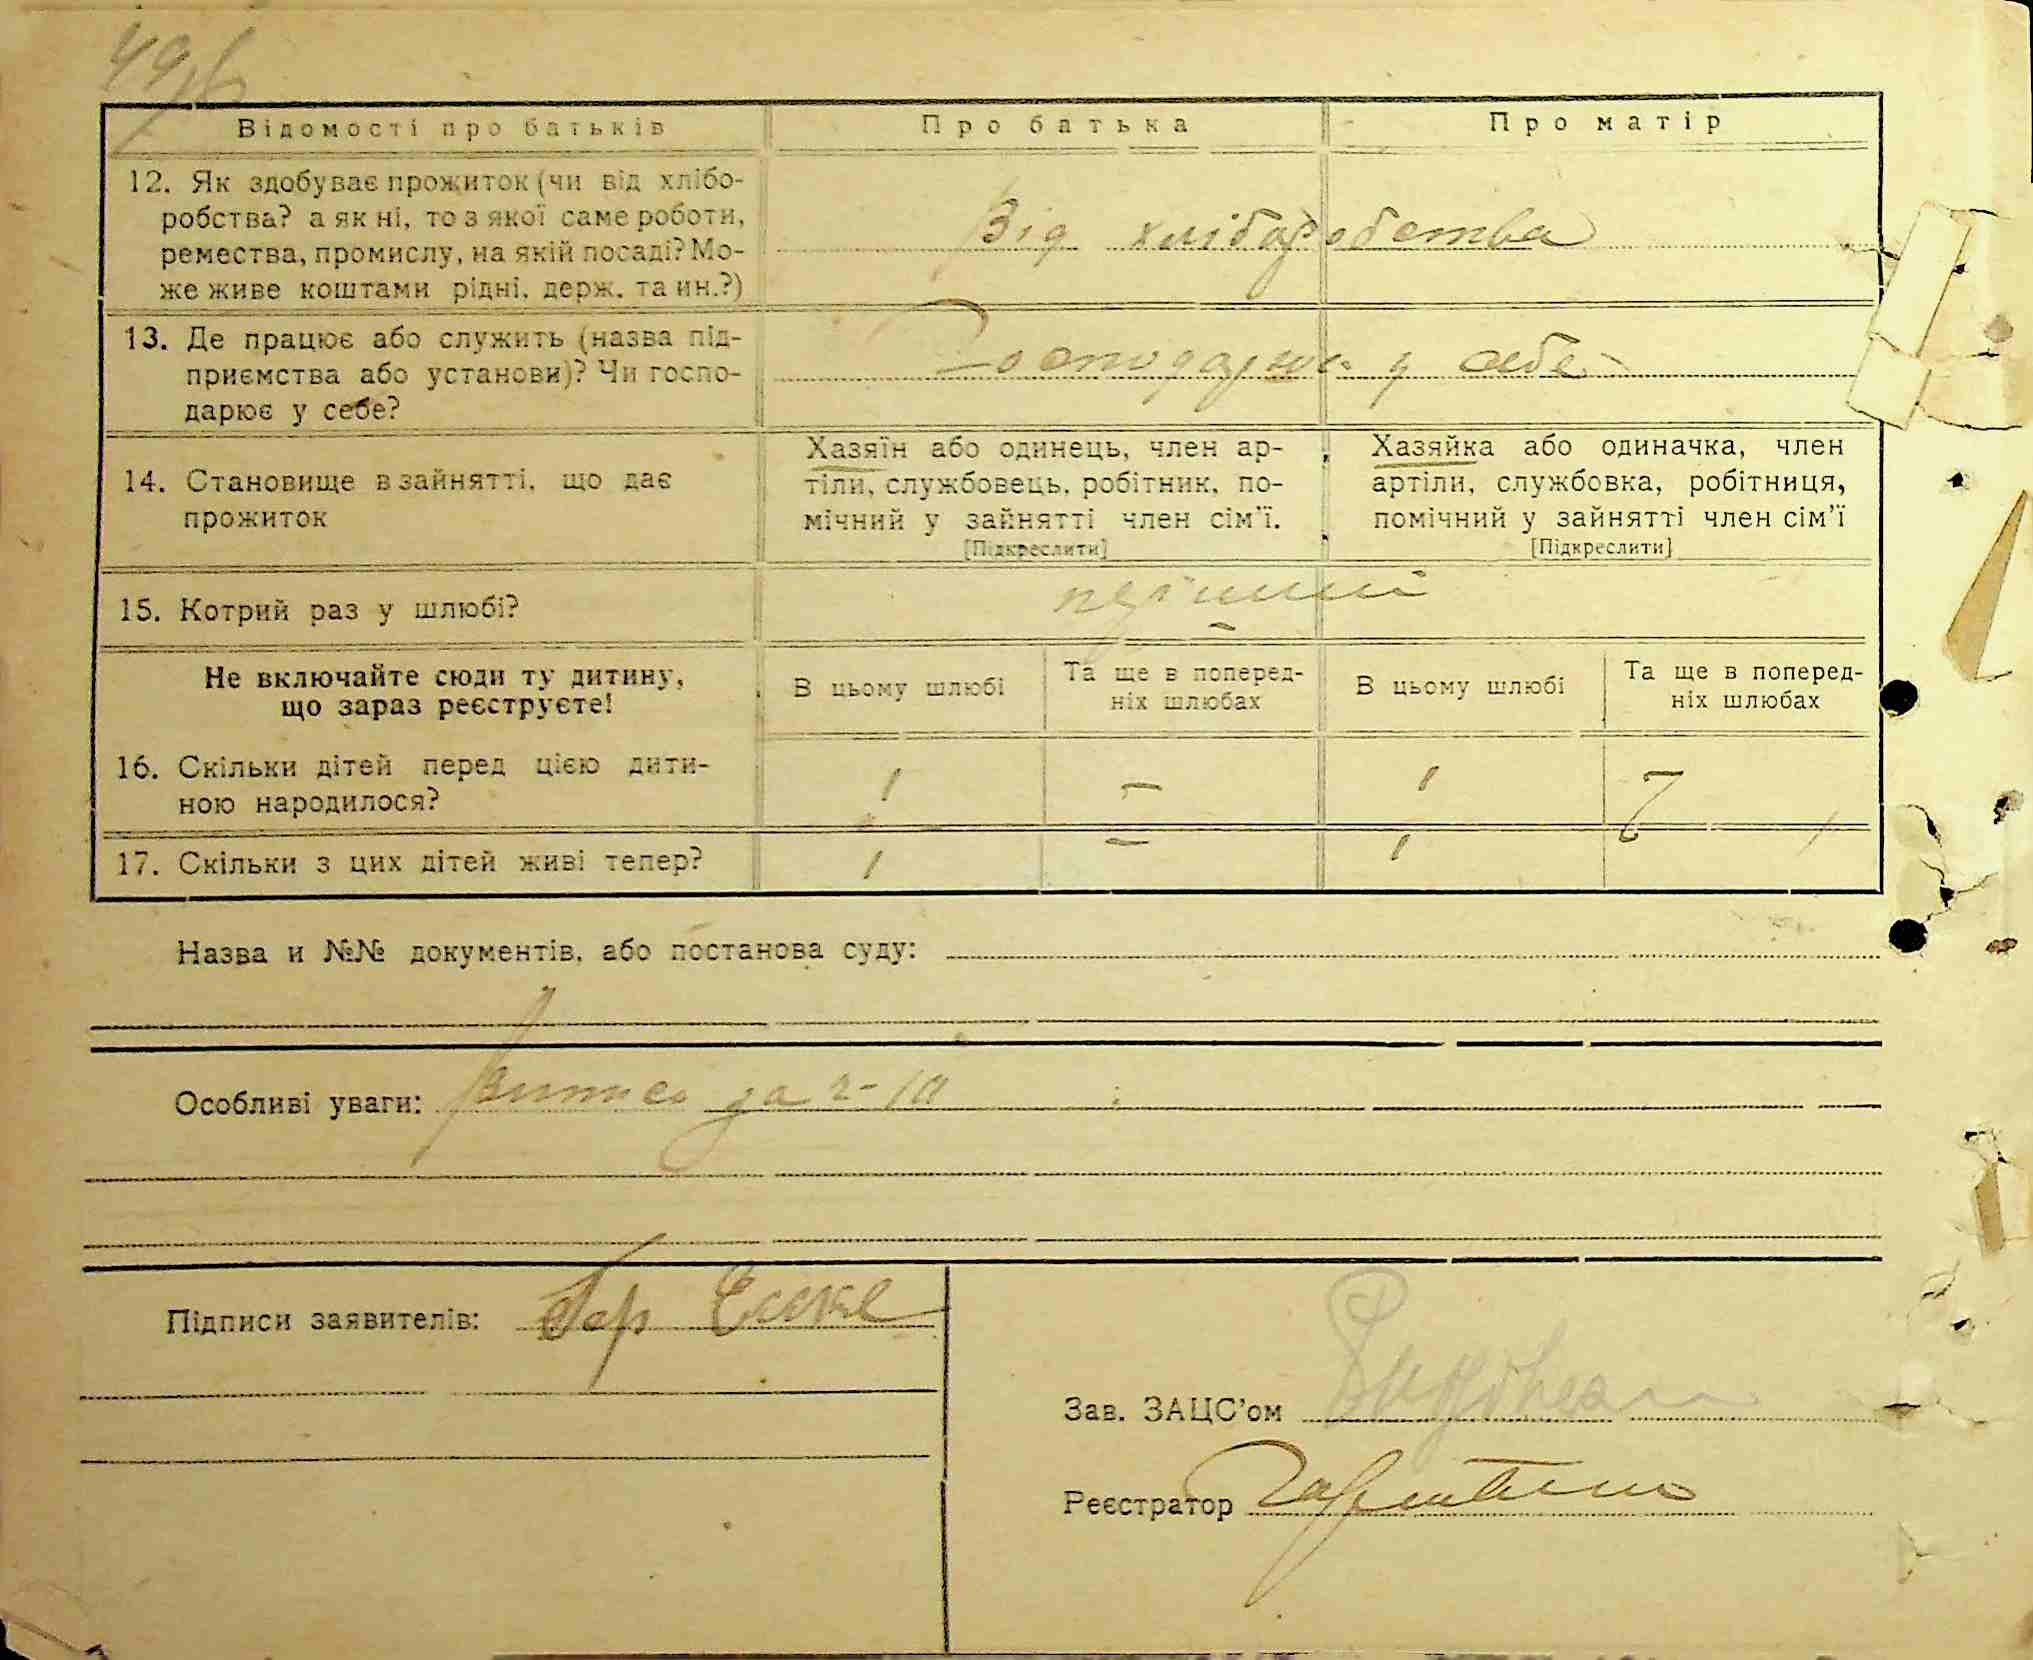 Відомості про батьків
Про батька
Про матір
12. Як здобуває прожиток (чи від хлібо-
робства? а як ні, то з якої саме роботи,
ремества, промислу, на якій посаді? Мо-
же живе коштами рідні, держ. та ин.?)
Від хліборобства
13. Де працює або служить (назва під-
приємства або установи)? Чи госпо-
дарює у себе?
Господарює у себе
14. Становище в зайнятті, що дає
прожиток
Хазяїн або одинець, член ар-
тіли, службовець, робітник, по-
мічний у зайнятті член сім'ї.
[Підкреслити]
Хазяйка або одиначка, член
артіли, службовка, робітниця,
помічний у зайнятті член сім'ї
[Підкреслити]
15. Котрий раз у шлюбі?
Не включайте сюди ту дитину,
що зараз реєструєте!
В цьому шлюбі
Та ще в поперед-
ніх шлюбах
В цьому шлюбі
Та ще в поперед-
ніх шлюбах
16. Скільки дітей перед цією дити-
ною народилося?
1 - 1
17. Скільки з цих дітей живі тепер?
1 - 1
Назва и №№ документів, або постанова суду:
Особливі уваги:
Підписи заявителів:
Зав. ЗАЦС'ом
Реєстратор